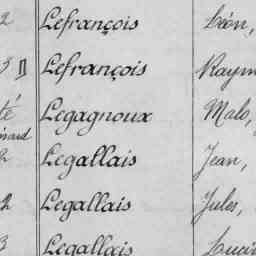 2 Lefrançois Léon,
3 Lefrançois Raym
té Legagnoux Malo,
2 Legallais Jean,
2 Legallais Jules,
3 Legallais Lucie